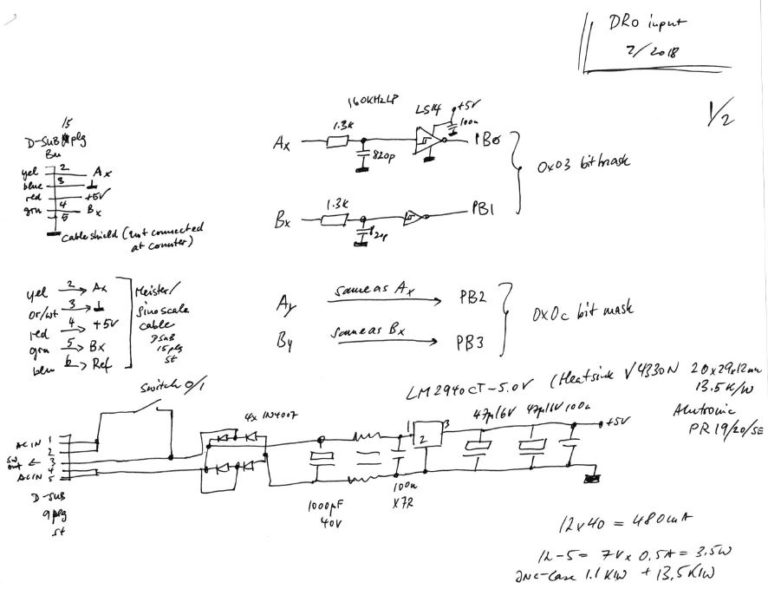 DRO input
2/2018
1/2
160KHz LP
LS14
+5V
100n
1.3k
Ax
820p
PB0
0x03 bitmask
1.3k
Bx
82p
PB1
Ay same as Ax PB2
By same as Bx PB3
0x0c bit mask
15
D-SUB plg
Bu
yel 2 Ax
blue 3
red 4 +5V
grn 5 Bx
Cable shield (not connected
at counter)
yel 2 Ax
or/wt 3
red 4 +5V
grn 5 Bx
blu 6 Ref
Meister/
Sino scale
cable
Dsub
15plg
st
Switch 0/1
4x 1N4007
AC IN 1
2
SW out 3
4
AC IN 5
D-SUB
9plg
st
1000µF
40V
100n
X7R
LM2940CT-5.0V (Heatsink V4330N 20x29x12mm
13.5K/W
Alutronic
PR19/20/SE
1
2
3
47µ/16V 47µ/16V 100n
+5V
12x40 = 480mA
12-5 = 7V x 0.5A = 3.5W
Jnc-case 1.1K/W + 13.5K/W